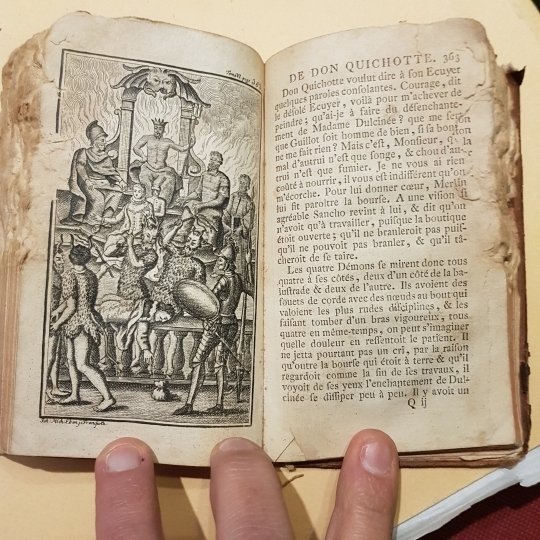 DE DON QUICHOTTE. 363
Don Quichotte voulut dire à son Ecuyer
quelques paroles consolantes. Courage, dit
le désolé Ecuyer, voilà pour m'achever de
peindre; qu'ai-je à faire du désenchante-
ment de Madame Dulcinée? que me sert
que Guillot soit homme de bien, si sa
ne me fait rien? Mais c'est, Monsieur, q
mal d'autrui n'est que songe, & chou d'au-
trui n'est que fumier. Je ne vous ai rien
coûté à nourrir, il vous est indifférent qu'on
m'écorche. Pour lui donner cœur, Merlin
lui fit paroître la bourse. A une vision si
agréable Sancho revint à lui, & dit qu'on
n'avoit qu'à travailler, puisque la boutique
étoit ouverte; qu'il ne branleroit pas puis-
qu'il ne pouvoit pas branler, & qu'il tâ-
cheroit de se taire.
Les quatre Démons se mirent donc tous
quatre à ses côtés, deux d'un côté de la ba-
lustrade & deux de l'autre. Ils avoient des
fouets de corde avec des nœuds au bout qui
valoient les plus rudes disciplines, & les
faisant tomber d'un bras vigoureux, tous
quatre en même-temps, on peut s'imaginer
quelle douleur en ressentoit le patient. Il
ne jetta pourtant pas un cri, par la raison
qu'outre la bourse qui étoit à terre & qu'il
regardoit comme la fin de ses travaux, il
voyoit de ses yeux l'enchantement de Dul-
cinée se dissiper peu à peu. Il y avoit un
Q ij